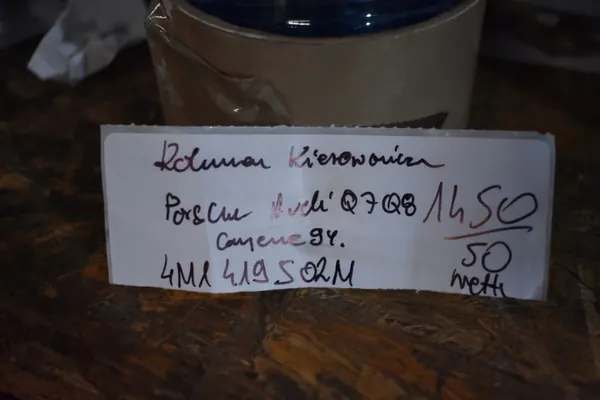 Kolumna Kierownicza
Porsche Audi Q7 Q8 1450
Cayenne 9Y. 50
4M1 419 502M netto